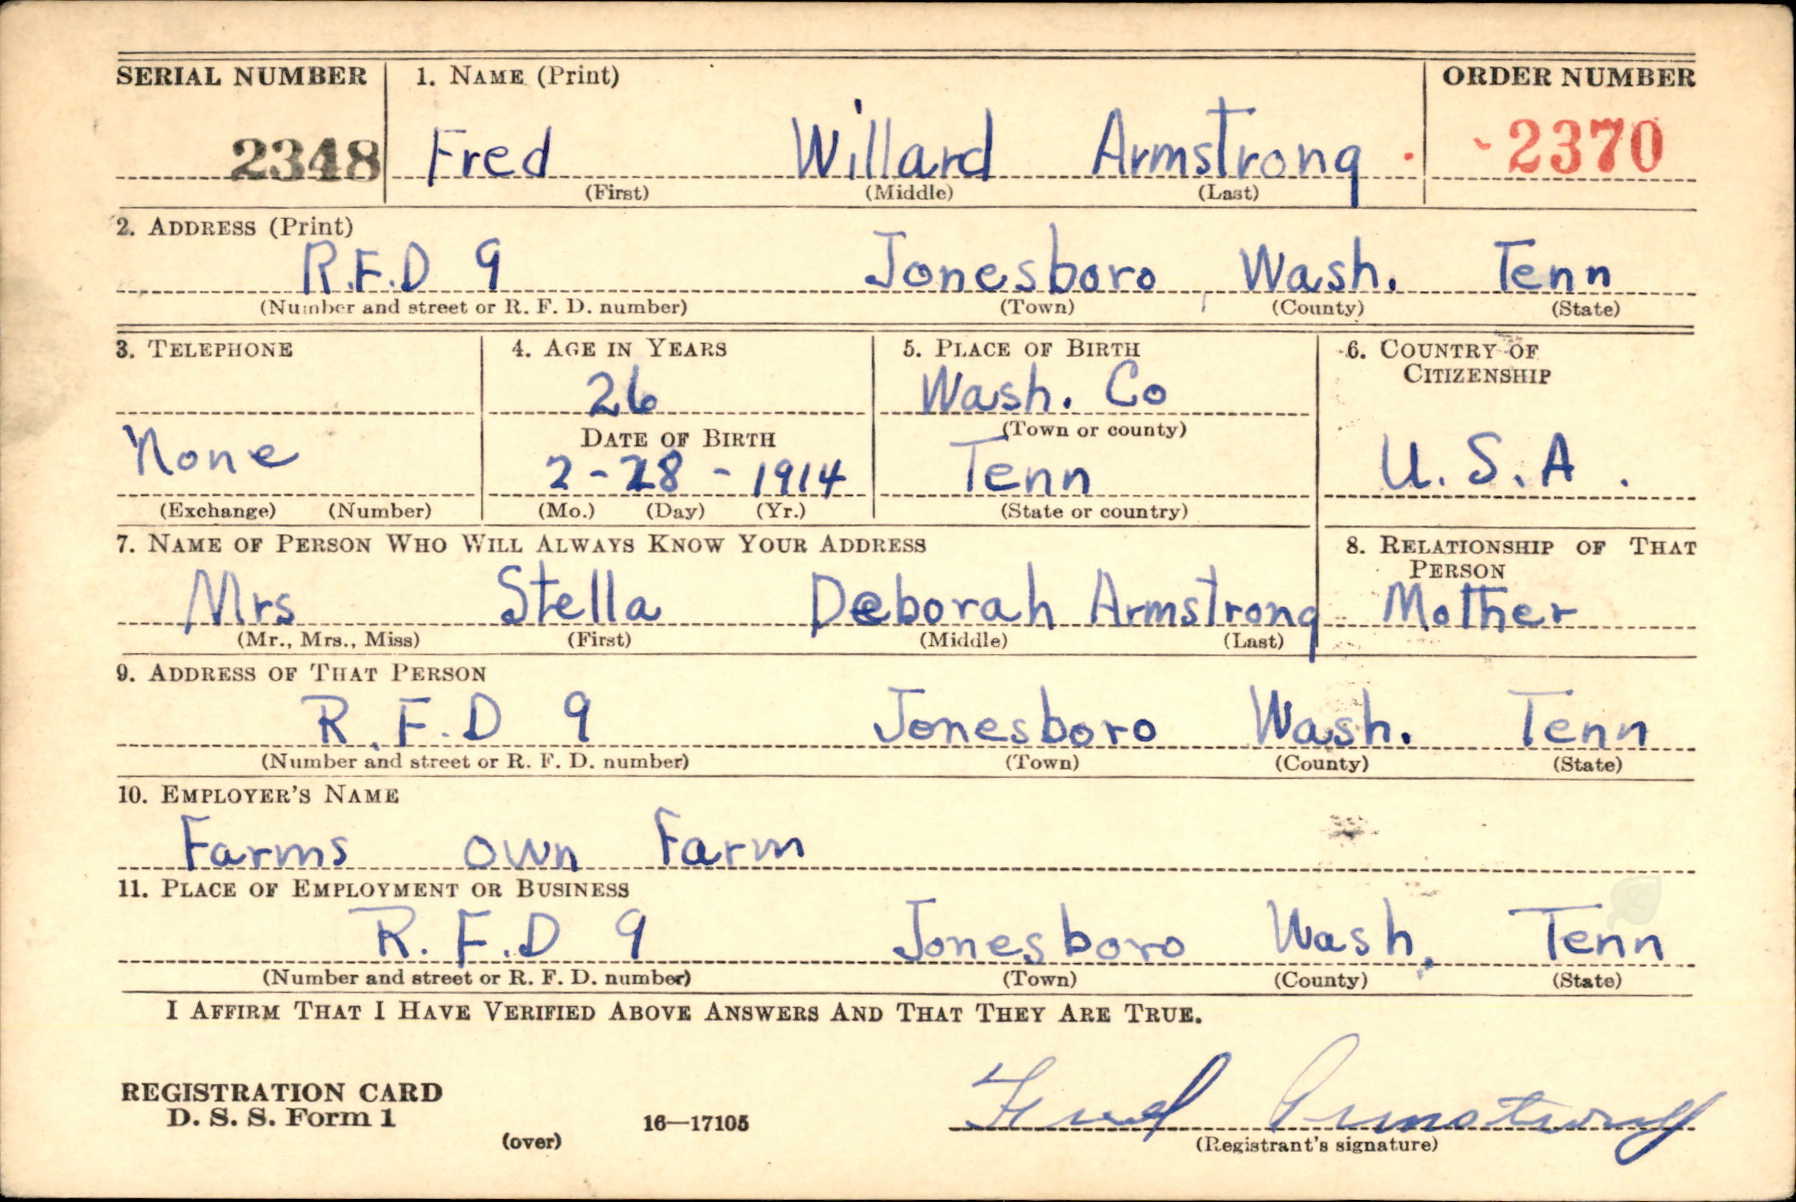 SERIAL NUMBER 1. NAME (Print) ORDER NUMBER
2348 Fred Willard Armstrong 2370
(First) (Middle) (Last)
2. ADDRESS (Print)
R.F.D 9 Jonesboro Wash. Tenn
(Number and street or R. F. D. number) (Town) (County) (State)
3. TELEPHONE 4. AGE IN YEARS 5. PLACE OF BIRTH 6. COUNTRY OF
CITIZENSHIP
26 Wash. Co
DATE OF BIRTH (Town or county)
None 2-28-1914 Tenn U.S.A.
(Exchange) (Number) (Mo.) (Day) (Yr.) (State or country)
7. NAME OF PERSON WHO WILL ALWAYS KNOW YOUR ADDRESS 8. RELATIONSHIP OF THAT
PERSON
Mrs Stella Deborah Armstrong Mother
(Mr., Mrs., Miss) (First) (Middle) (Last)
9. ADDRESS OF THAT PERSON
R.F.D 9 Jonesboro Wash. Tenn
(Number and street or R. F. D. number) (Town) (County) (State)
10. EMPLOYER'S NAME
Farms own Farm
11. PLACE OF EMPLOYMENT OR BUSINESS
R.F.D 9 Jonesboro Wash. Tenn
(Number and street or R. F. D. number) (Town) (County) (State)
I AFFIRM THAT I HAVE VERIFIED ABOVE ANSWERS AND THAT THEY ARE TRUE.
REGISTRATION CARD
D. S. S. Form 1 16—17105 Fred Armstrong
(over) (Registrant's signature)